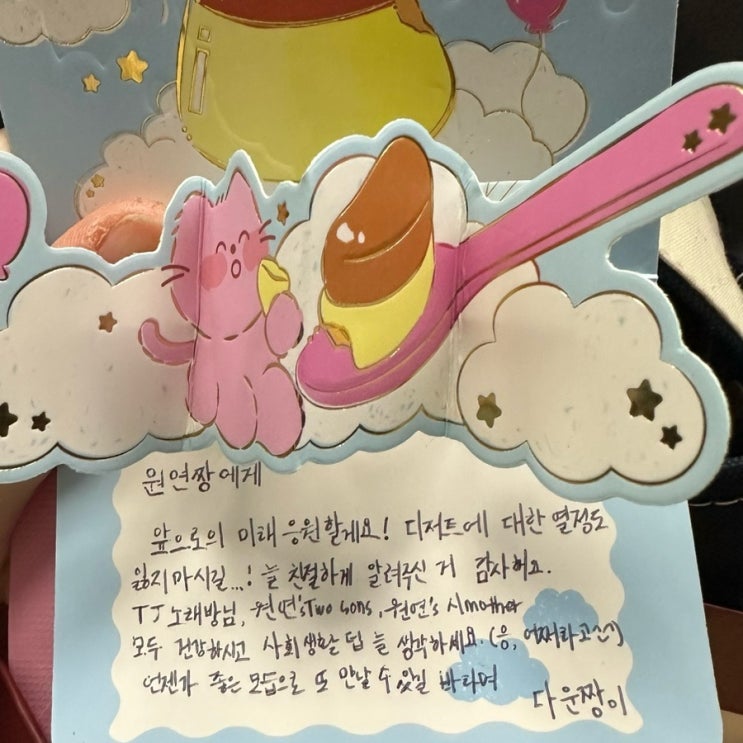 원연짱에게
앞으로의 미래 응원할게요! 디저트에 대한 열정도
잃지마시길...! 늘 친절하게 알려주신 거 감사해요.
TJ노래방님, 원연's Two sons, 원연's 시mother
모두 건강하시고 사회생활 팁 늘 생각하세요. (응, 어쩌라고^^)
언젠가 좋은 모습으로 또 만날 수 있길 바라며
다운짱이